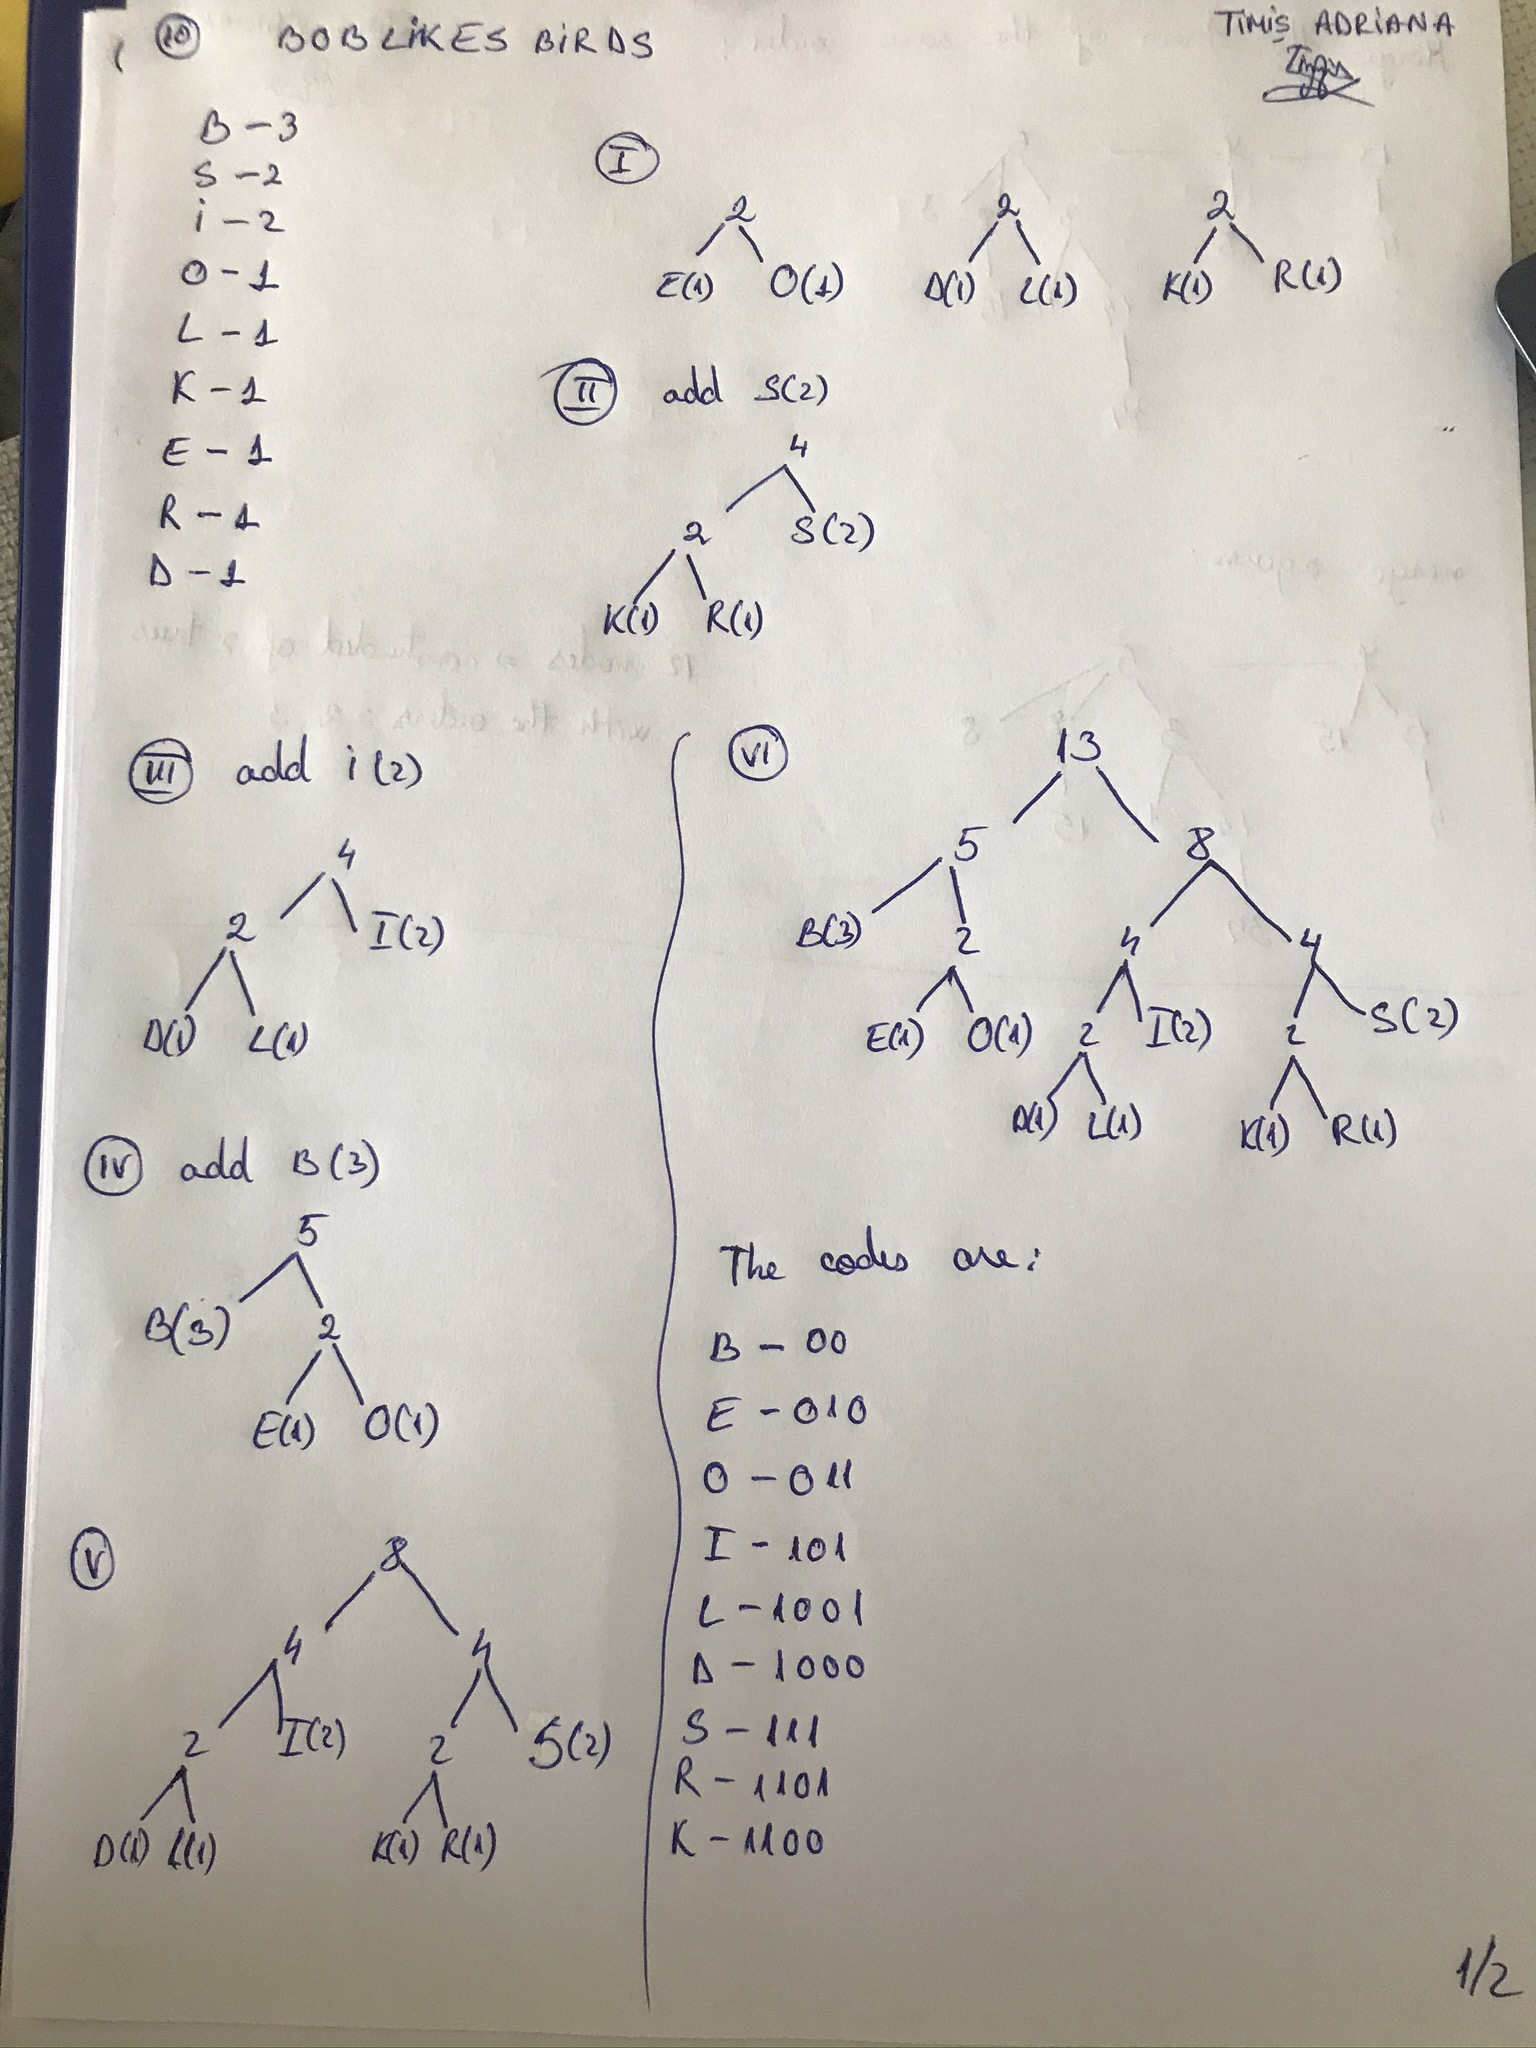 10 BOB LiKES BiRDS
TIMIŞ ADRIANA
B - 3
S - 2
i - 2
O - 1
L - 1
K - 1
E - 1
R - 1
D - 1
I
2 2 2
E(1) O(1) D(1) L(1) K(1) R(1)
II add S(2)
4
2 S(2)
K(1) R(1)
III add i(2)
4
2 I(2)
D(1) L(1)
IV add B(3)
5
B(3) 2
E(1) O(1)
V
8
4 4
2 I(2) 2 S(2)
D(1) L(1) K(1) R(1)
VI
13
5 8
B(3) 2 4 4
E(1) O(1) 2 I(2) 2 S(2)
D(1) L(1) K(1) R(1)
The codes are:
B - 00
E - 010
O - 011
I - 101
L - 1001
D - 1000
S - 111
R - 1101
K - 1100
1/2